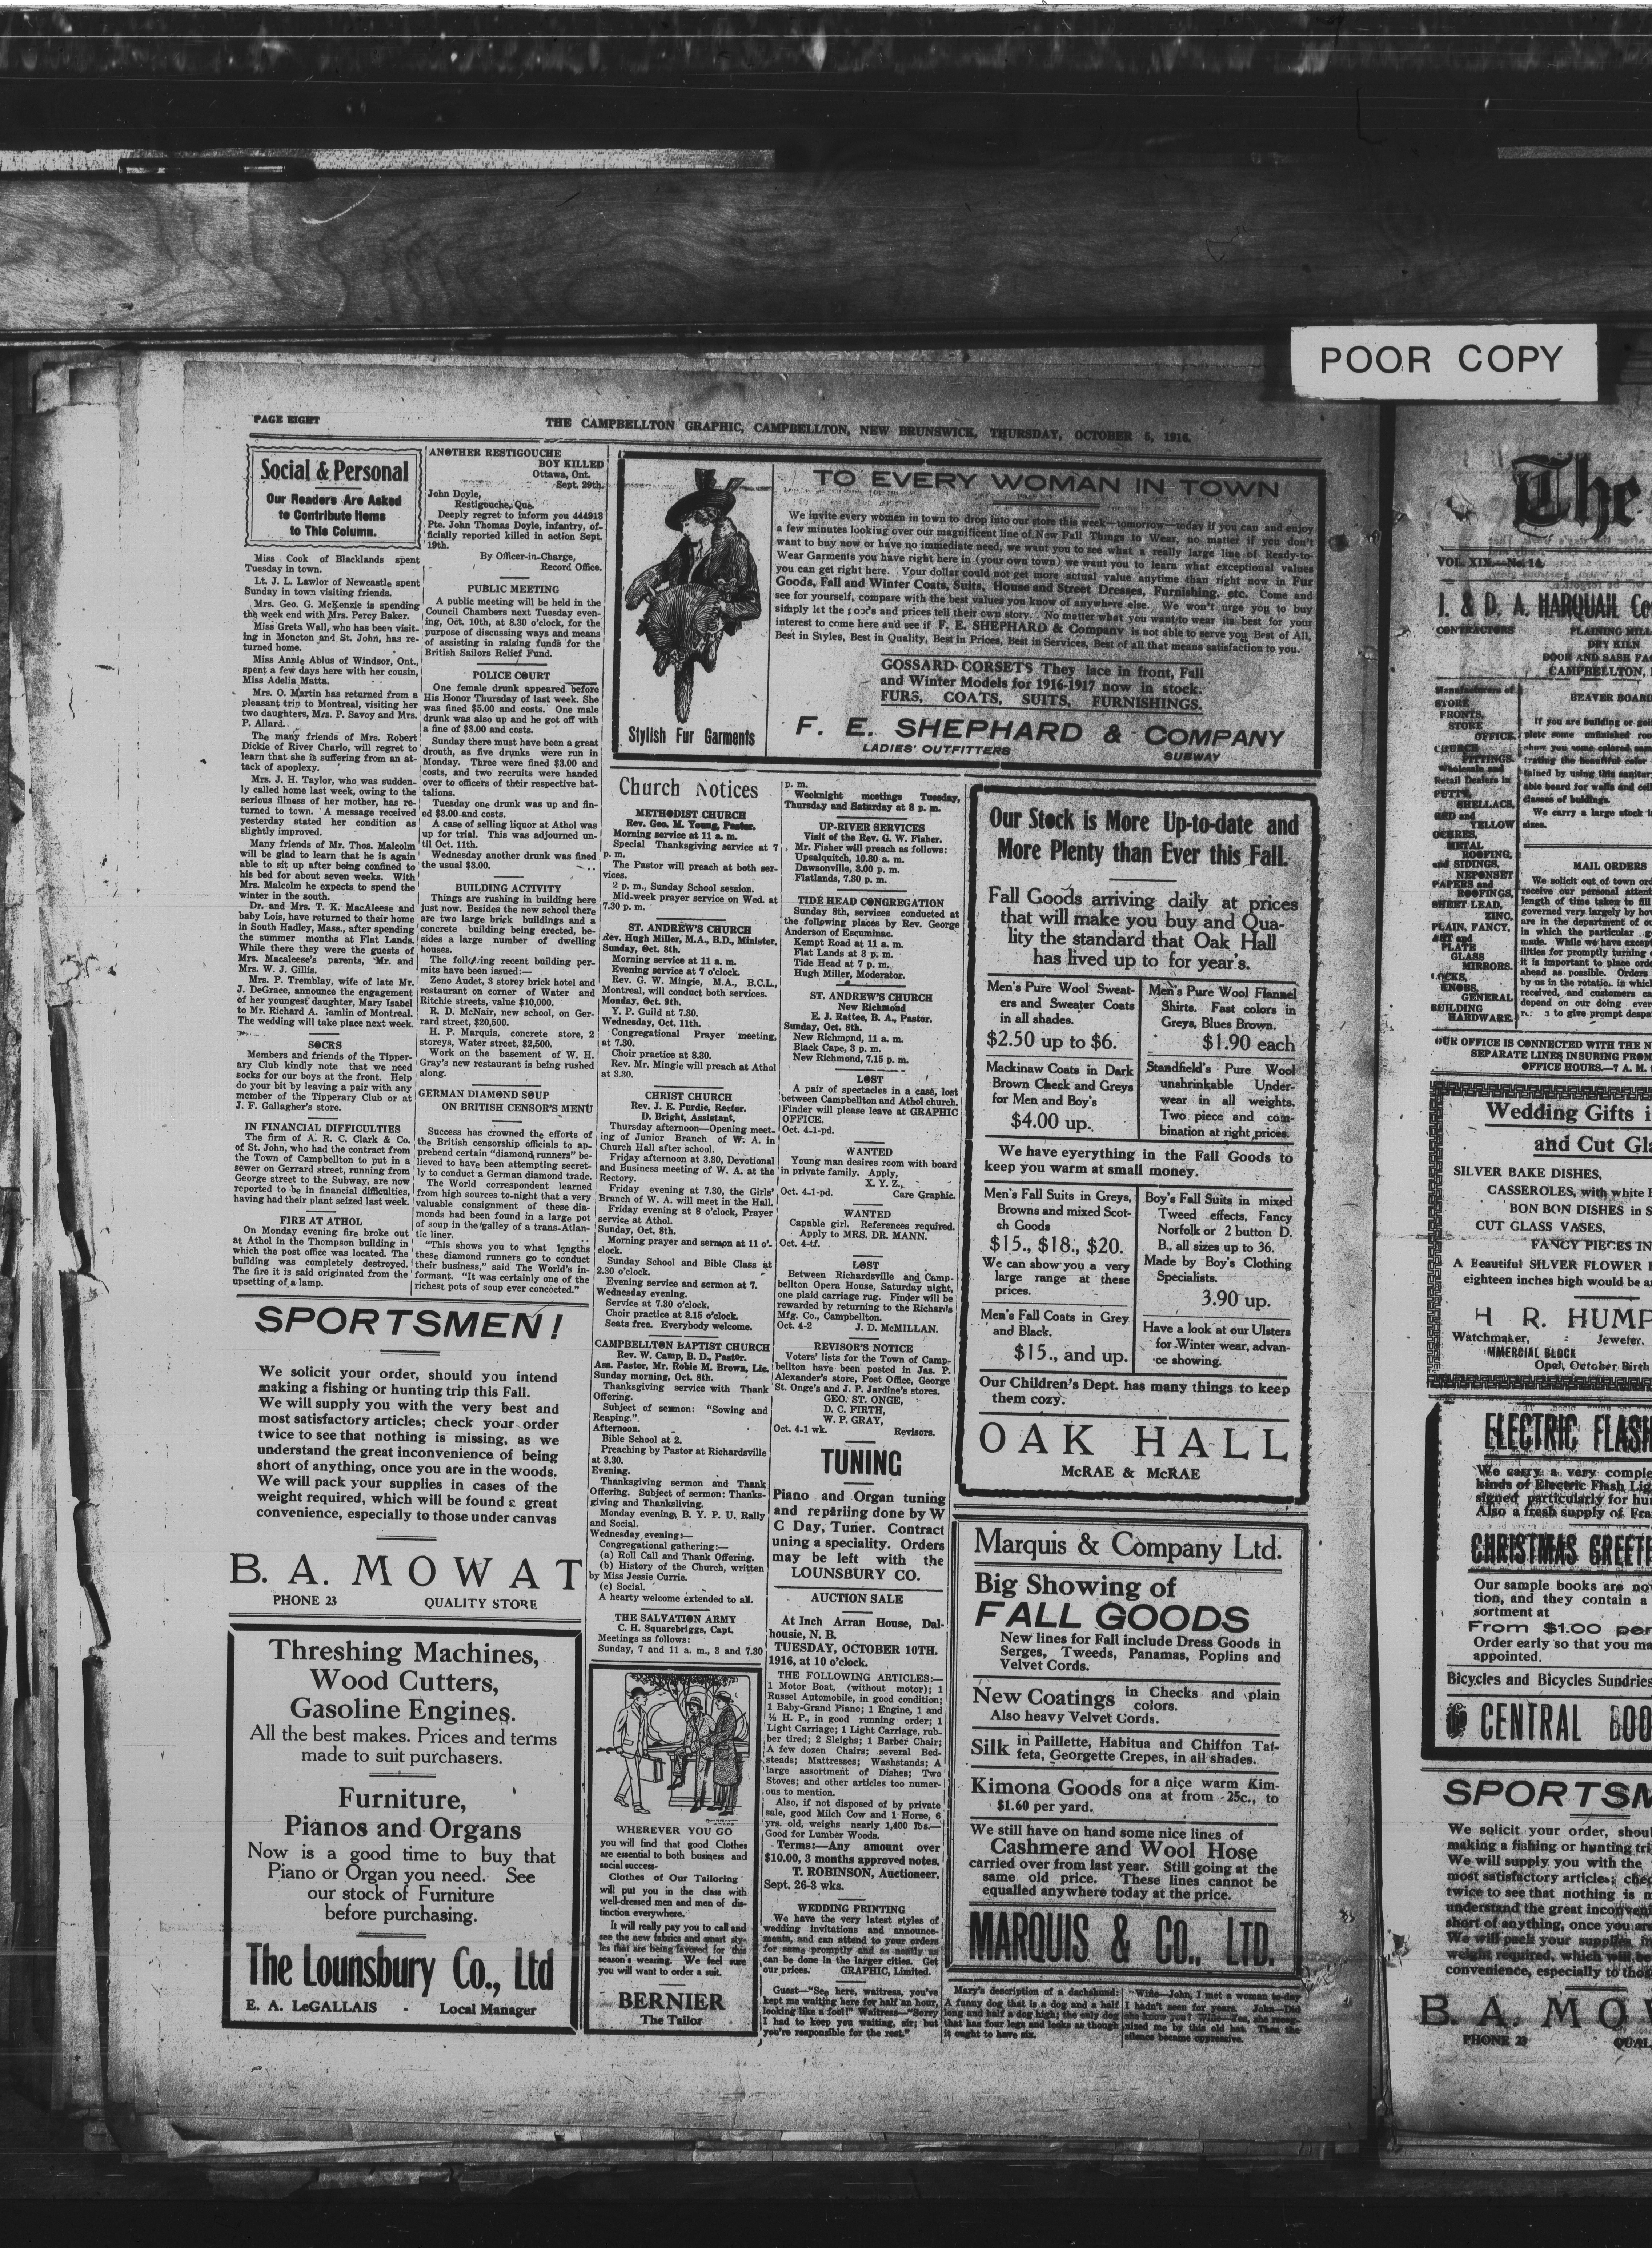 POOR COPY
PAGE EIGHT
THE CAMPBELLTON GRAPHIC, CAMPBELLTON, NEW BRUNSWICK, THURSDAY, OCTOBER 5, 1916.
Social & Personal
Our Readers Are Asked
to Contribute Items
to This Column.
Miss Cook of Blacklands spent
Tuesday in town.
Lt. J. L. Lawlor of Newcastle spent
Sunday in town visiting friends.
Mrs. Geo. G. McKenzie is spending
the week end with Mrs. Percy Baker.
Miss Greta Wall, who has been visit-
ing in Moncton and St. John, has re-
turned home.
Miss Annie Ablus of Windsor, Ont.,
spent a few days here with her cousin,
Miss Adelia Matta.
Mrs. O. Martin has returned from a
pleasant trip to Montreal, visiting her
two daughters, Mrs. P. Savoy and Mrs.
P. Allard.
The many friends of Mrs. Robert
Dickie of River Charlo, will regret to
learn that she is suffering from an at-
tack of apoplexy.
Mrs. J. H. Taylor, who was sudden-
ly called home last week, owing to the
serious illness of her mother, has re-
turned to town. A message received
yesterday stated her condition as
slightly improved.
Many friends of Mr. Thos. Malcolm
will be glad to learn that he is again
able to sit up after being confined to
his bed for about seven weeks. With
Mrs. Malcolm he expects to spend the
winter in the south.
Dr. and Mrs. T. K. MacAleese and
baby Lois, have returned to their home
in South Hadley, Mass., after spending
the summer months at Flat Lands.
While there they were the guests of
Mrs. Macaleese's parents, Mr. and
Mrs. W. J. Gillis.
Mrs. P. Tremblay, wife of late Mr.
J. DeGrace, announce the engagement
of her youngest daughter, Mary Isabel
to Mr. Richard A. Hamlin of Montreal.
The wedding will take place next week.
SOCKS
Members and friends of the Tipper-
ary Club kindly note that we need
socks for our boys at the front. Help
do your bit by leaving a pair with any
member of the Tipperary Club or at
J. F. Gallagher's store.
IN FINANCIAL DIFFICULTIES
The firm of A. R. C. Clark & Co.
of St. John, who had the contract from
the Town of Campbellton to put in a
sewer on Gerrard street, running from
George street to the Subway, are now
reported to be in financial difficulties,
having had their plant seized last week.
FIRE AT ATHOL
On Monday evening fire broke out
at Athol in the Thompson building in
which the post office was located. The
building was completely destroyed.
The fire it is said originated from the
upsetting of a lamp.
ANOTHER RESTIGOUCHE
BOY KILLED
Ottawa, Ont.
Sept. 29th.
John Doyle,
Restigouche, Que.
Deeply regret to inform you 444913
Pte. John Thomas Doyle, infantry, of-
ficially reported killed in action Sept.
19th.
By Officer-in-Charge,
Record Office.
PUBLIC MEETING
A public meeting will be held in the
Council Chambers next Tuesday even-
ing, Oct. 10th, at 8.30 o'clock, for the
purpose of discussing ways and means
of assisting in raising funds for the
British Sailors Relief Fund.
POLICE COURT
One female drunk appeared before
His Honor Thursday of last week. She
was fined $5.00 and costs. One male
drunk was also up and he got off with
a fine of $3.00 and costs.
Sunday there must have been a great
drouth, as five drunks were run in
Monday. Three were fined $3.00 and
costs, and two recruits were handed
over to officers of their respective bat-
talions.
Tuesday one drunk was up and fin-
ed $3.00 and costs.
A case of selling liquor at Athol was
up for trial. This was adjourned un-
til Oct. 11th.
Wednesday another drunk was fined
the usual $3.00.
BUILDING ACTIVITY
Things are rushing in building here
just now. Besides the new school there
are two large brick buildings and a
concrete building being erected, be-
sides a large number of dwelling
houses.
The following recent building per-
mits have been issued:—
Zeno Audet, 3 storey brick hotel and
restaurant on corner of Water and
Ritchie streets, value $10,000.
R. D. McNair, new school, on Ger-
rard street, $20,500.
H. P. Marquis, concrete store, 2
storeys, Water street, $2,500.
Work on the basement of W. H.
Gray's new restaurant is being rushed
along.
GERMAN DIAMOND SOUP
ON BRITISH CENSOR'S MENU
Success has crowned the efforts of
the British censorship officials to ap-
prehend certain "diamond runners" be-
lieved to have been attempting secret-
ly to conduct a German diamond trade.
The World correspondent learned
from high sources to-night that a very
valuable consignment of these dia-
monds had been found in a large pot
of soup in the galley of a trans-Atlan-
tic liner.
"This shows you to what lengths
these diamond runners go to conduct
their business," said The World's in-
formant. "It was certainly one of the
richest pots of soup ever concocted."
SPORTSMEN!
We solicit your order, should you intend
making a fishing or hunting trip this Fall.
We will supply you with the very best and
most satisfactory articles; check your order
twice to see that nothing is missing, as we
understand the great inconvenience of being
short of anything, once you are in the woods.
We will pack your supplies in cases of the
weight required, which will be found a great
convenience, especially to those under canvas
B. A. MOWAT
PHONE 23 QUALITY STORE
Threshing Machines,
Wood Cutters,
Gasoline Engines.
All the best makes. Prices and terms
made to suit purchasers.
Furniture,
Pianos and Organs
Now is a good time to buy that
Piano or Organ you need. See
our stock of Furniture
before purchasing.
The Lounsbury Co., Ltd
E. A. LeGALLAIS - Local Manager
Stylish Fur Garments
TO EVERY WOMAN IN TOWN
We invite every women in town to drop into our store this week—tomorrow—today if you can and enjoy
a few minutes looking over our magnificent line of New Fall Things to Wear, no matter if you don't
want to buy now or have no immediate need, we want you to see what a really large line of Ready-to-
Wear Garments you have right here in (your own town) we want you to learn what exceptional values
you can get right here. Your dollar could not get more actual value anytime than right now in Fur
Goods, Fall and Winter Coats, Suits, House and Street Dresses, Furnishing, etc. Come and
see for yourself, compare with the best values you know of anywhere else. We won't urge you to buy
simply let the goods and prices tell their own story. No matter what you want to wear its best for your
interest to come here and see if F. E. SHEPHARD & Company is not able to serve you Best of All,
Best in Styles, Best in Quality, Best in Prices, Best in Services, Best of all that means satisfaction to you.
GOSSARD CORSETS They lace in front, Fall
and Winter Models for 1916-1917 now in stock.
FURS, COATS, SUITS, FURNISHINGS.
F. E. SHEPHARD & COMPANY
LADIES' OUTFITTERS SUBWAY
Church Notices
METHODIST CHURCH
Rev. Geo. M. Young, Pastor.
Morning service at 11 a. m.
Special Thanksgiving service at 7
p. m.
The Pastor will preach at both ser-
vices.
2 p. m., Sunday School session.
Mid-week prayer service on Wed. at
7.30 p. m.
ST. ANDREW'S CHURCH
Rev. Hugh Miller, M.A., B.D., Minister.
Sunday, Oct. 8th.
Morning service at 11 a. m.
Evening service at 7 o'clock.
Rev. G. W. Mingie, M.A., B.C.L.,
Montreal, will conduct both services.
Monday, Oct. 9th.
Y. P. Guild at 7.30.
Wednesday, Oct. 11th.
Congregational Prayer meeting,
at 7.30.
Choir practice at 8.30.
Rev. Mr. Mingie will preach at Athol
at 3.30.
CHRIST CHURCH
Rev. J. E. Purdie, Rector.
D. Bright, Assistant.
Thursday afternoon—Opening meet-
ing of Junior Branch of W. A. in
Church Hall after school.
Friday afternoon at 3.30, Devotional
and Business meeting of W. A. at the
Rectory.
Friday evening at 7.30, the Girls'
Branch of W. A. will meet in the Hall.
Friday evening at 8 o'clock, Prayer
service at Athol.
Sunday, Oct. 8th.
Morning prayer and sermon at 11 o'-
clock.
Sunday School and Bible Class at
2.30 o'clock.
Evening service and sermon at 7.
Wednesday evening.
Service at 7.30 o'clock.
Choir practice at 8.15 o'clock.
Seats free. Everybody welcome.
CAMPBELLTON BAPTIST CHURCH
Rev. W. Camp, B. D., Pastor.
Ass. Pastor, Mr. Robie M. Brown, Lic.
Sunday morning, Oct. 8th.
Thanksgiving service with Thank
Offering.
Subject of sermon: "Sowing and
Reaping.".
Afternoon.
Bible School at 2.
Preaching by Pastor at Richardsville
at 3.30.
Evening.
Thanksgiving sermon and Thank
Offering. Subject of sermon: Thanks-
giving and Thanksliving.
Monday evening, B. Y. P. U. Rally
and Social.
Wednesday evening:—
Congregational gathering:—
(a) Roll Call and Thank Offering.
(b) History of the Church, written
by Miss Jessie Currie.
(c) Social.
A hearty welcome extended to all.
THE SALVATION ARMY
C. H. Squarebriggs, Capt.
Meetings as follows:
Sunday, 7 and 11 a. m., 3 and 7.30
p. m.
Weeknight meetings Tuesday,
Thursday and Saturday at 8 p. m.
UP-RIVER SERVICES
Visit of the Rev. G. W. Fisher.
Mr. Fisher will preach as follows:
Upsalquitch, 10.30 a. m.
Dawsonville, 3.00 p. m.
Flatlands, 7.30 p. m.
TIDE HEAD CONGREGATION
Sunday 8th, services conducted at
the following places by Rev. George
Anderson of Escuminac.
Kempt Road at 11 a. m.
Flat Lands at 3 p. m.
Tide Head at 7 p. m.
Hugh Miller, Moderator.
ST. ANDREW'S CHURCH
New Richmond
E. J. Rattee, B. A., Pastor.
Sunday, Oct. 8th.
New Richmond, 11 a. m.
Black Cape, 3 p. m.
New Richmond, 7.15 p. m.
LOST
A pair of spectacles in a case, lost
between Campbellton and Athol church.
Finder will please leave at GRAPHIC
OFFICE.
Oct. 4-1-pd.
WANTED
Young man desires room with board
in private family. Apply,
X. Y. Z.,
Oct. 4-1-pd. Care Graphic.
WANTED
Capable girl. References required.
Apply to MRS. DR. MANN.
Oct. 4-tf.
LOST
Between Richardsville and Camp-
bellton Opera House, Saturday night,
one plaid carriage rug. Finder will be
rewarded by returning to the Richards
Mfg. Co., Campbellton.
Oct. 4-2 J. D. McMILLAN.
REVISOR'S NOTICE
Voters' lists for the Town of Camp-
bellton have been posted in Jas. P.
Alexander's store, Post Office, George
St. Onge's and J. P. Jardine's stores.
GEO. ST. ONGE,
D. C. FIRTH,
W. P. GRAY,
Oct. 4-1 wk. Revisors.
TUNING
Piano and Organ tuning
and repáriing done by W
C Day, Tuner. Contract
uning a speciality. Orders
may be left with the
LOUNSBURY CO.
AUCTION SALE
At Inch Arran House, Dal-
housie, N. B.
TUESDAY, OCTOBER 10TH.
1916, at 10 o'clock.
THE FOLLOWING ARTICLES:—
1 Motor Boat, (without motor); 1
Russel Automobile, in good condition;
1 Baby-Grand Piano; 1 Engine, 1 and
½ H. P., in good running order; 1
Light Carriage; 1 Light Carriage, rub-
ber tired; 2 Sleighs; 1 Barber Chair;
A few dozen Chairs; several Bed-
steads; Mattresses; Washstands; A
large assortment of Dishes; Two
Stoves; and other articles too numer-
ous to mention.
Also, if not disposed of by private
sale, good Milch Cow and 1 Horse, 6
yrs. old, weighs nearly 1,400 lbs.—
Good for Lumber Woods.
Terms:—Any amount over
$10.00, 3 months approved notes.
T. ROBINSON, Auctioneer.
Sept. 26-3 wks.
WEDDING PRINTING
We have the very latest styles of
wedding invitations and announce-
ments, and can attend to your orders
for same promptly and as neatly as
can be done in the larger cities. Get
our prices. GRAPHIC, Limited.
Guest—"See here, waitress, you've
kept me waiting here for half an hour,
looking like a fool!" Waitress—"Sorry
I had to keep you waiting, sir; but
you're responsible for the rest."
WHEREVER YOU GO
you will find that good Clothes
are essential to both business and
social success-
Clothes of Our Tailoring
will put you in the class with
well-dressed men and men of dis-
tinction everywhere.
It will really pay you to call and
see the new fabrics and smart sty-
les that are being favored for this
season's wearing. We feel sure
you will want to order a suit.
BERNIER
The Tailor
Our Stock is More Up-to-date and
More Plenty than Ever this Fall.
Fall Goods arriving daily at prices
that will make you buy and Qua-
lity the standard that Oak Hall
has lived up to for year's.
Men's Pure Wool Sweat-
ers and Sweater Coats
in all shades.
$2.50 up to $6.
Men's Pure Wool Flannel
Shirts. Fast colors in
Greys, Blues Brown.
$1.90 each
Mackinaw Coats in Dark
Brown Check and Greys
for Men and Boy's
$4.00 up.
Standfield's Pure Wool
unshrinkable Under-
wear in all weights.
Two piece and com-
bination at right prices.
We have eyerything in the Fall Goods to
keep you warm at small money.
Men's Fall Suits in Greys,
Browns and mixed Scot-
ch Goods
$15., $18., $20.
We can show you a very
large range at these
prices.
Boy's Fall Suits in mixed
Tweed effects, Fancy
Norfolk or 2 button D.
B., all sizes up to 36.
Made by Boy's Clothing
Specialists.
3.90 up.
Men's Fall Coats in Grey
and Black.
$15., and up.
Have a look at our Ulsters
for Winter wear, advan-
ce showing.
Our Children's Dept. has many things to keep
them cozy.
OAK HALL
McRAE & McRAE
Marquis & Company Ltd.
Big Showing of
FALL GOODS
New lines for Fall include Dress Goods in
Serges, Tweeds, Panamas, Poplins and
Velvet Cords.
New Coatings in Checks and plain
colors.
Also heavy Velvet Cords.
Silk in Paillette, Habitua and Chiffon Taf-
feta, Georgette Crepes, in all shades.
Kimona Goods for a nice warm Kim-
ona at from 25c., to
$1.60 per yard.
We still have on hand some nice lines of
Cashmere and Wool Hose
carried over from last year. Still going at the
same old price. These lines cannot be
equalled anywhere today at the price.
MARQUIS & CO., LTD.
Mary's description of a dachshund:
A funny dog that is a dog and a half
long and half a dog high; the only dog
that has four legs and looks as though
it ought to have six.
Wife—John, I met a woman to-day
I hadn't seen for years. John—Did
she know you? Wife—Yes, she recog-
nized me by this old hat. Then the
silence became oppressive.
The
VOL. XIX.—No. 14
J. & D. A. HARQUAIL Co
CONTRACTORS
PLAINING MILL
DRY KILN
DOOR AND SASH FA
CAMPBELLTON,
Manufacturers of
STORE
FRONTS,
STORE
OFFICE,
CHURCH
FITTINGS.
Wholesale and
Retail Dealers in
PUTTY,
SHELLACS,
RED and
YELLOW
OCHRES,
METAL
ROOFING,
and SIDINGS,
NEPONSET
PAPERS and
ROOFINGS,
SHEET LEAD,
ZINC,
PLAIN, FANCY,
ART and
PLATE
GLASS
MIRRORS.
LOCKS,
KNOBS,
GENERAL
BUILDING
HARDWARE.
BEAVER BOARD
If you are building or
plete some unfinished
show you some colored
trating the beautiful color
tained by using this
able board for walls and
classes of buldings.
We carry a large stock
sizes.
MAIL ORDERS
We solicit out of town
receive our personal
length of time taken to fill
governed very largely by
are in the department of
in which the particular
made. While we have
ilities for promptly turning
it is important to place
ahead as possible. Orders
by us in the rotatio. in which
received, and customers
depend on our doing
to give prompt
OUR OFFICE IS CONNECTED WITH THE N
SEPARATE LINES INSURING PROM
OFFICE HOURS.—7 A. M.
Wedding Gifts i
and Cut Gla
SILVER BAKE DISHES,
CASSEROLES, with white
BON BON DISHES in S
CUT GLASS VASES,
FANCY PIECES IN
A Beautiful SILVER FLOWER
eighteen inches high would be a
H R. HUMP
Watchmaker, : Jeweler.
MMERCIAL BLOCK
Opal, October Birth
ELECTRIC FLASH
We carry a very comple
kinds of Electric Flash Lig
signed particularly for hu
Also a fresh supply of Fra
CHRISTMAS GREETI
Our sample books are no
tion, and they contain a
sortment at
From $1.00 per
Order early so that you ma
appointed.
Bicycles and Bicycles Sundries
CENTRAL BOO
SPORTSM
We solicit your order, shou
making a fishing or hunting tri
We will supply you with the
most satisfactory articles; chec
twice to see that nothing is m
understand the great inconveni
short of anything, once you are
We will pack your supplies in
weight required, which will be
convenience, especially to those
B. A. MO
PHONE 23 QUAL